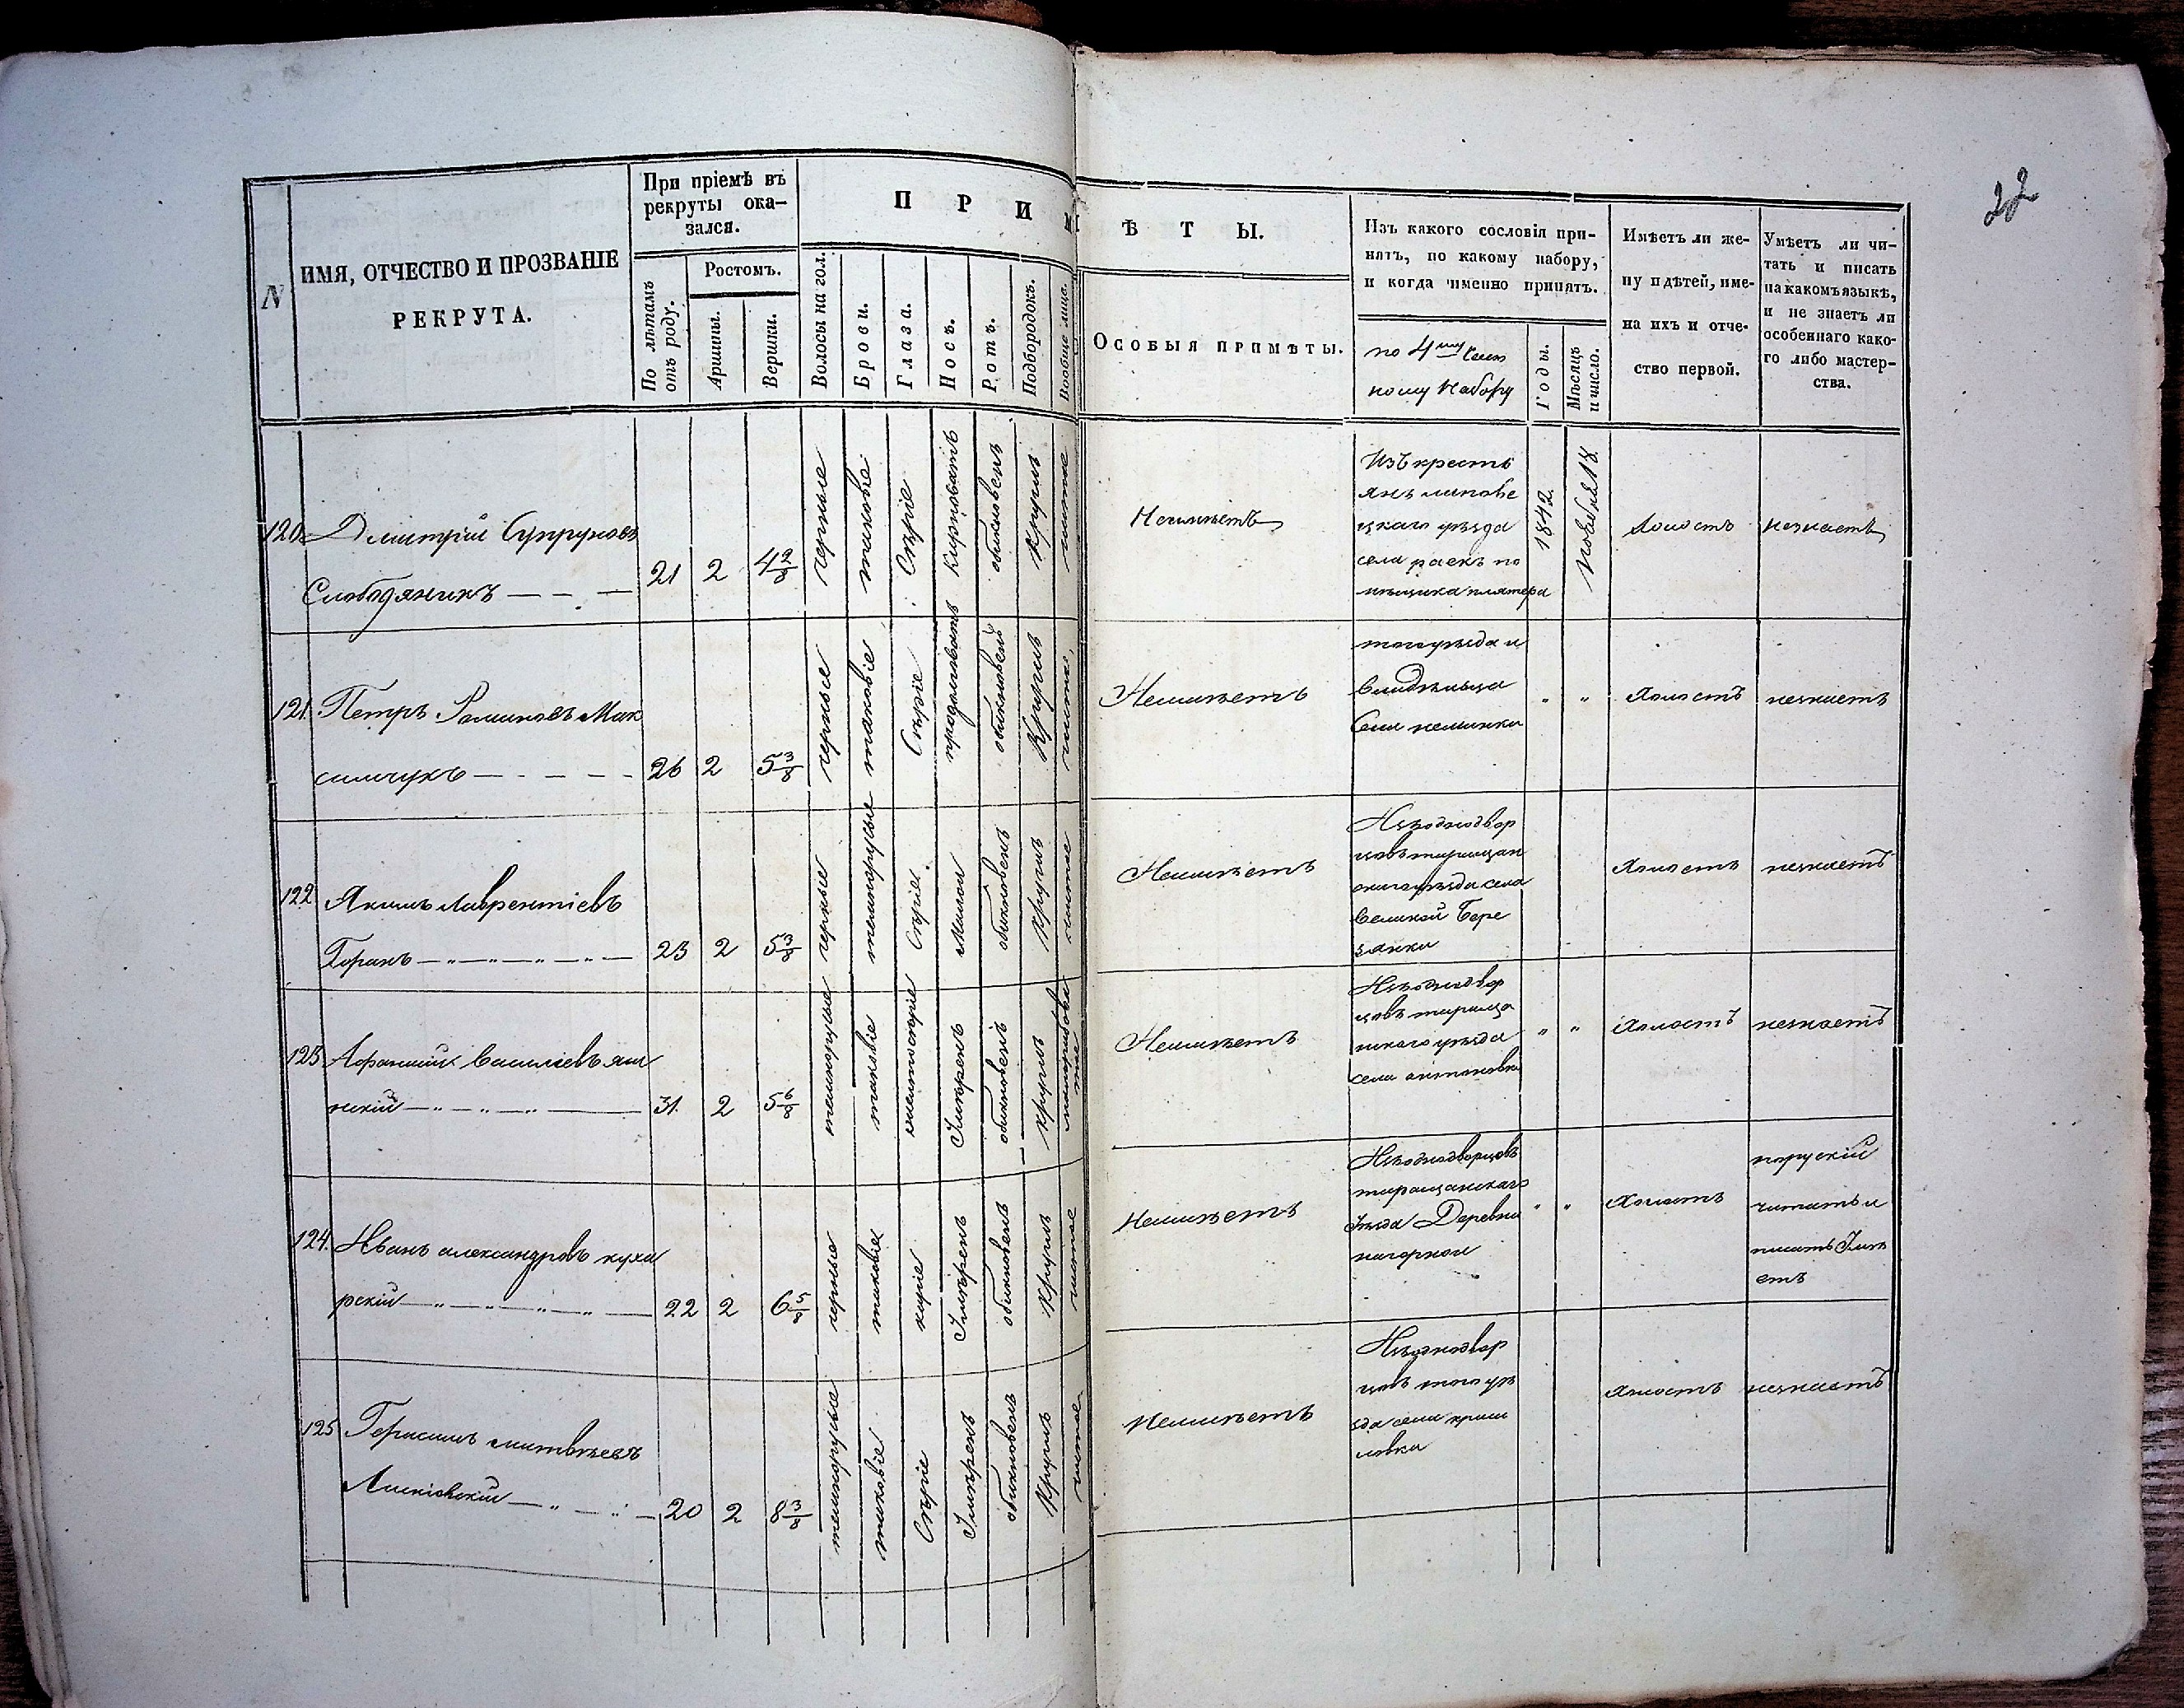 22
N
ИМЯ, ОТЧЕСТВО И ПРОЗВАНІЕ
РЕКРУТА.
При пріемѣ въ
рекруты ока-
зался.
По лѣтамъ
отъ роду.
Ростомъ.
Аршины.
Вершки.
ПРИМѢТЫ.
Волосы на гол.
Брови.
Глаза.
Носъ.
Ротъ.
Подбородокъ.
Вообще лице.
ОСОБЫЯ ПРИМѢТЫ.
Изъ какого сословія при-
нятъ, по какому набору,
и когда именно принятъ.
по 4му
ному набору
Годы.
Мѣсяцъ
и число.
Имѣетъ ли же-
ну и дѣтей, име-
на ихъ и отче-
ство первой.
Умѣетъ ли чи-
тать и писать
на какомъ языкѣ,
и не знаетъ ли
особеннаго како-
го либо мастер-
ства.
120
Дмитрій Супруновъ
Слободяникъ
21
2
4 2/8
черные
таковые
Сѣріе
Курноватъ
обикновенъ
Круглъ
чистое
Неимѣетъ
Изъ кресть
янъ липове
цкаго уѣзда
села раекъ по
мѣщика плятера
1842
Ноября 18
Холостъ
незнаетъ
121
Петръ Романовъ Мак
симчукъ
26
2
5 3/8
черные
таковіе
Сѣріе
продолговатъ
обикновенъ
Круглъ
чистое
Неимѣетъ
тогоуѣзда и
владѣльца
"
"
Холостъ
незнаетъ
122
Якимъ Лаврентіевъ
Горанъ
23
2
5 3/8
черные
темнорусые
Сѣріе
Малой
обикновенъ
круглъ
чистое
Неимѣетъ
Изъоднодвор
цовъ таращан
скагоуѣзда села
великой Бере
зянки
Холостъ
незнаетъ
123
Афанасій Василіевъ
нскій
31
2
5 6/8
темнорусые
таковіе
Умѣренъ
обикновенъ
круглъ
Неимѣетъ
Изъоднодвор
цовъ тараща
нскаго уѣзда
села антоновки
"
"
Холостъ
незнаетъ
124
Иванъ александровъ куха
рскій
22
2
6 5/8
черные
таковіе
каріе
Умѣренъ
обикновенъ
Круглъ
чистое
Неимѣетъ
Изъоднодворцовъ
таращанскаго
Уѣзда Деревни
нагорной
"
"
Холостъ
поруский
читать и
писать Умѣ
етъ
125
Герасимъ матвѣевъ
20
2
8 3/8
темнорусые
таковіе
Сѣріе
Умѣренъ
обикновенъ
Круглъ
чистое
Неимѣетъ
Изъоднодвор
цовъ того уѣ
зда села
ловки
Холостъ
незнаетъ